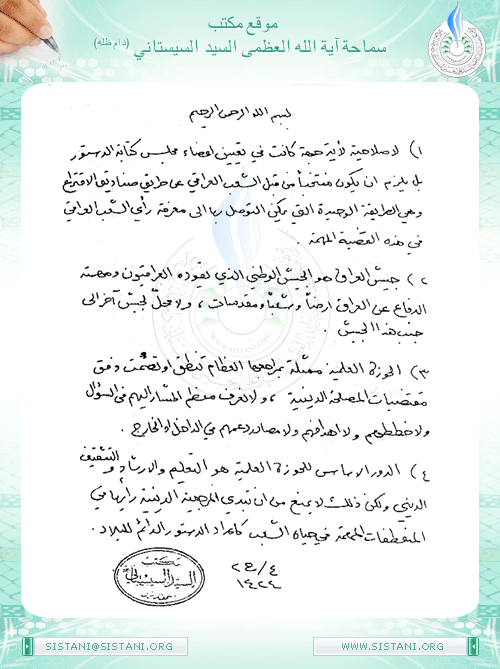 موقع مكتب
سماحة آية الله العظمى السيد السيستاني (دام ظله)
بسم الله الرحمن الرحيم
١) لا صلاحية لأية جهة كانت في تعيين اعضاء مجلس كتابة الدستور
بل يلزم ان يكون منتخباً من قبل الشعب العراقي عن طريق صناديق الاقتراع
وهي الطريقة الوحيدة التي يمكن التوصل بها الى معرفة رأي الشعب العراقي
في هذه القضية المهمة .
٢) جيش العراق هو الجيش الوطني الذي تقوده العراقيون ومهمته
الدفاع عن العراق ارضاً وشعباً ومقدسات ، ولا محلّ لجيش آخر الى
جنب هذا الجيش .
٣) الحوزة العلمية ممثلة بمراجعها العظام تنطق او تصمت وفق
مقتضيات المصلحة الدينية ، ولا نعرف معظم المشار اليهم في السؤال
ولا خططهم ولا اهدافهم ولا مصادر دعمهم في الداخل او الخارج .
٤) الدور الاساس للحوزة العلمية هو التعليم والارشاد والتثقيف
الديني ولكن ذلك لا يمنع من ان تبدي المرجعية الدينية رأيها في
المنعطفات المهمة في حياة الشعب كاعداد الدستور الدائم للبلاد .
٢٤/٤
١٤٢٤
مكتب
السيد السيستاني
SISTANI@SISTANI.ORG
WWW.SISTANI.ORG